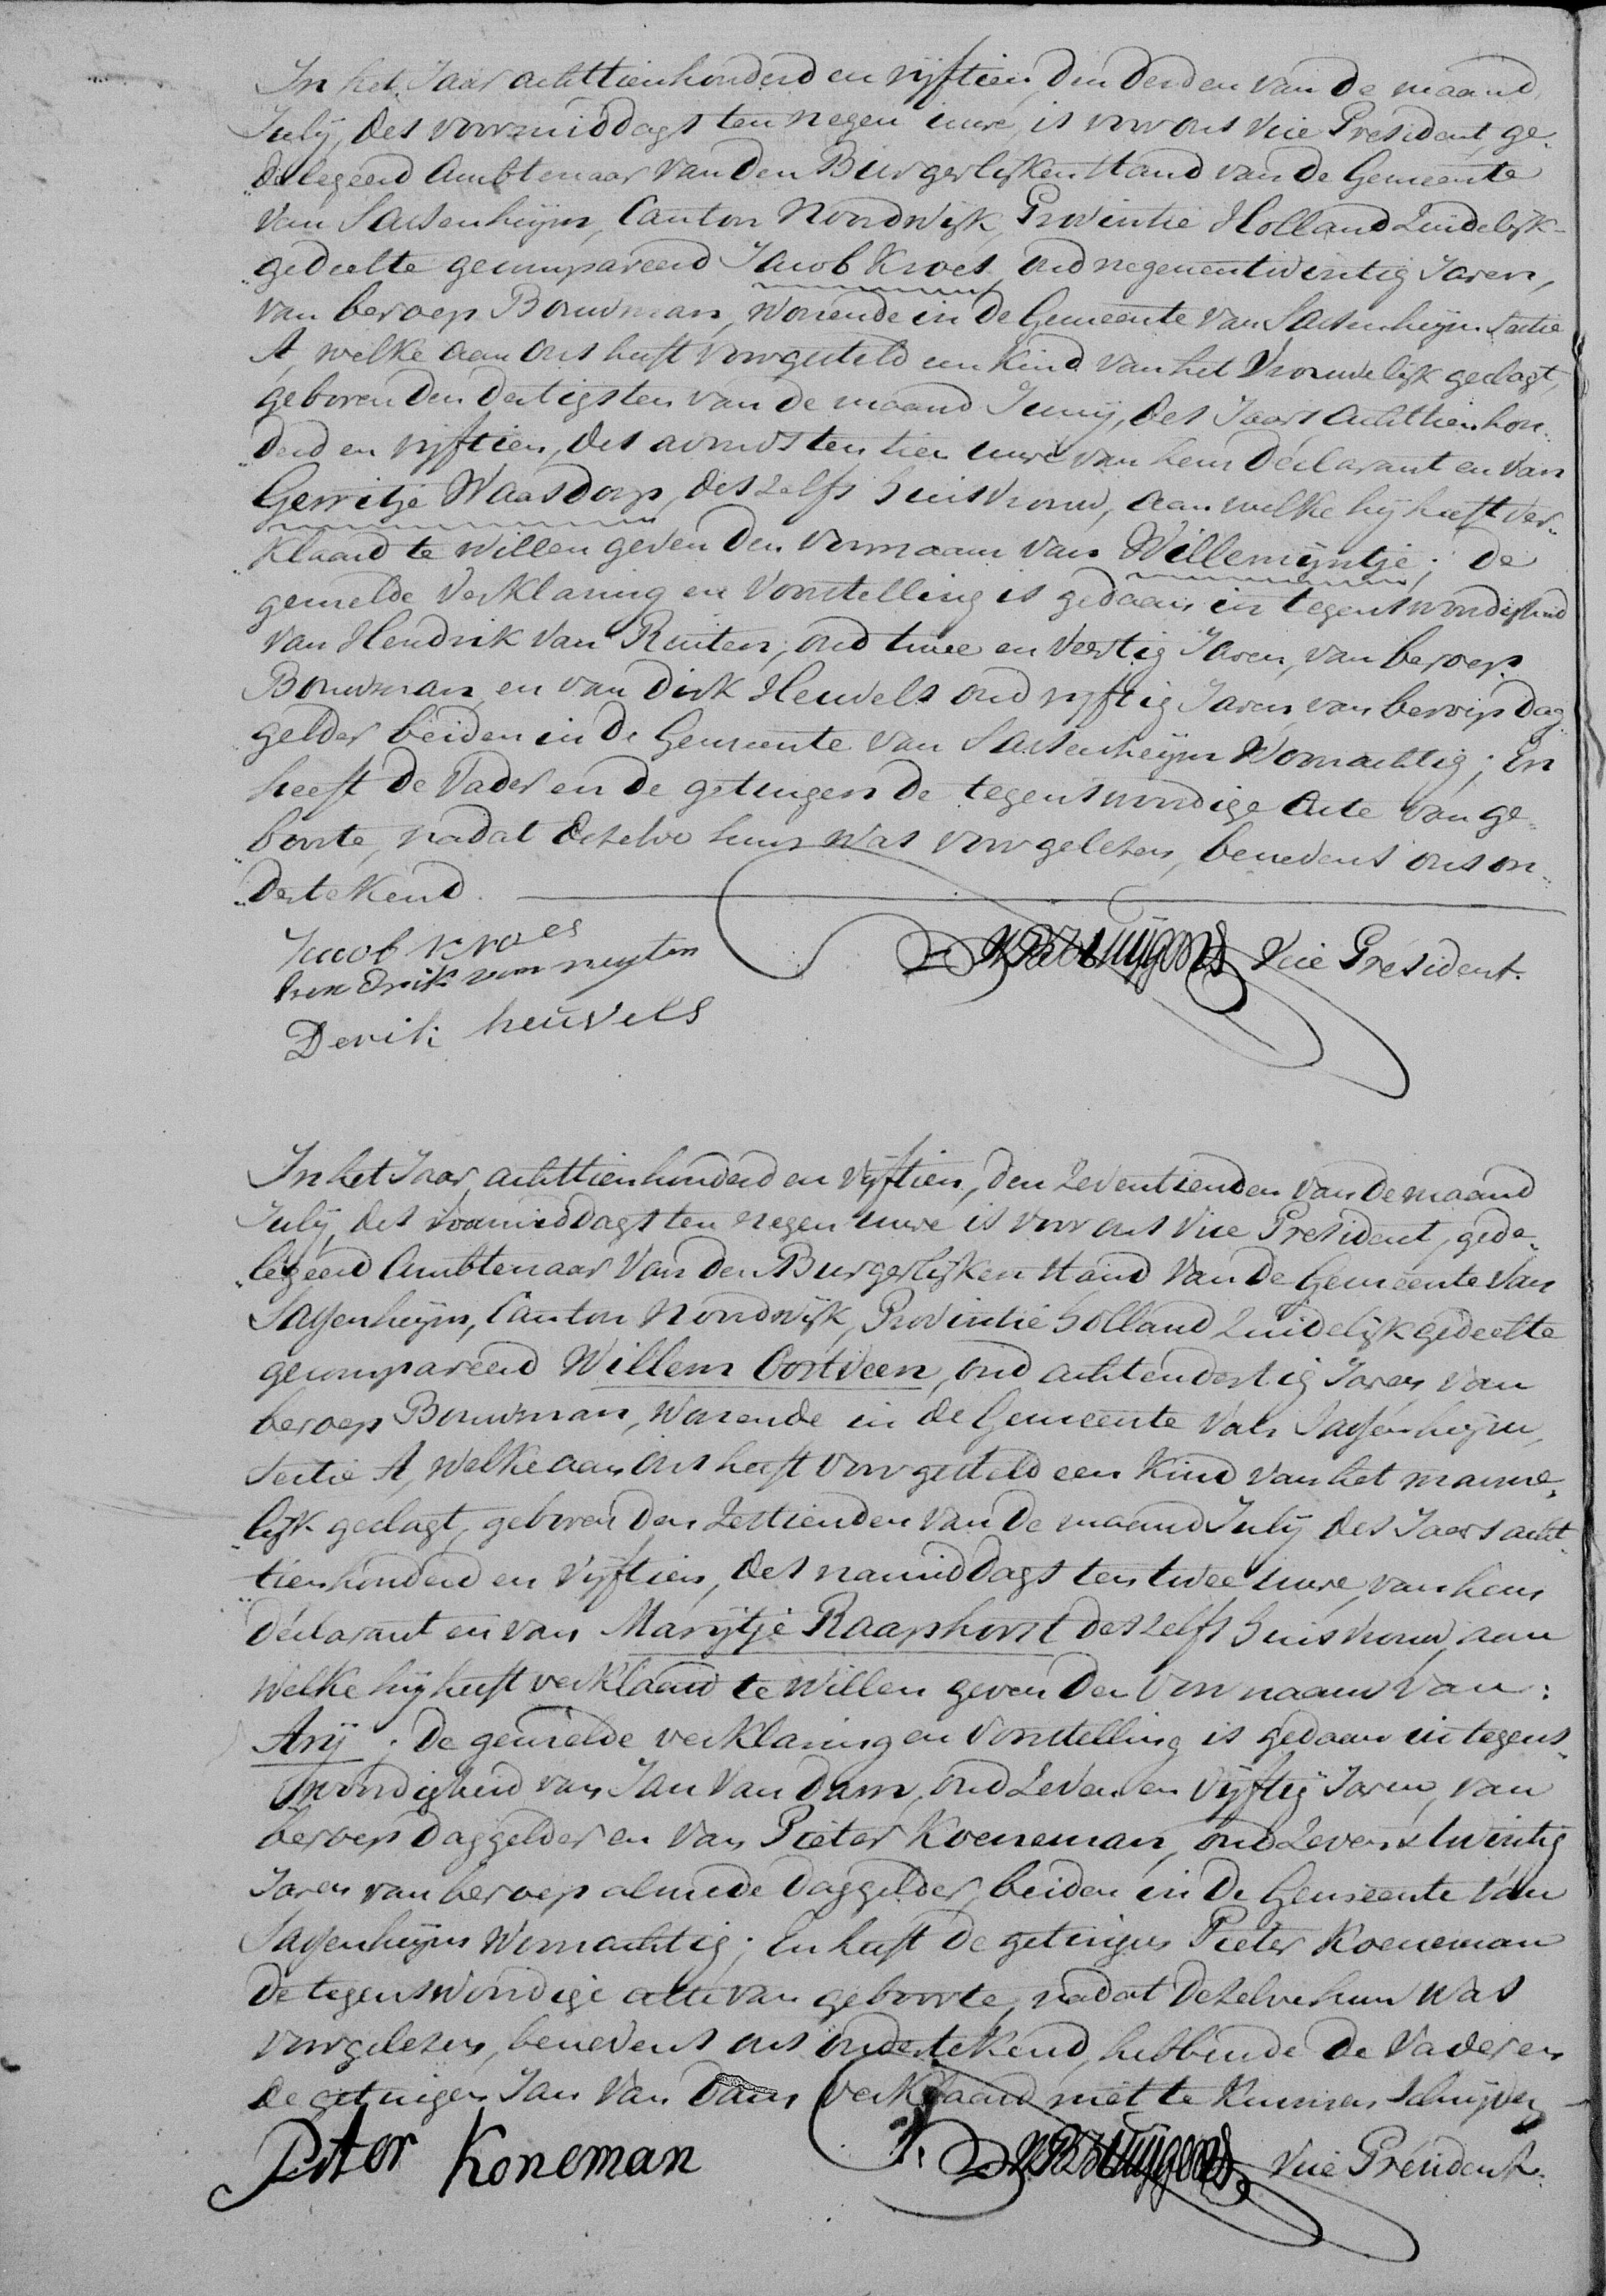 In het Jaar achttienhonderd en vijftien, den derden van de maand
Julij, des voormiddags ten negen uure, is voor ons Vice President ge-
„delegeerd Ambtenaar van den Burgerlijken stand van de Gemeente
van Sassenheijm, Canton Noordwijk, Provintie Holland Zuidelijk-
„gedeelte gecompareerd Jacob Kroes, oud negenentwintig Jaren,
van beroep Bouwman, wonende in de Gemeente van Sassenheijm Sectie
A, welke aan ons heeft voorgesteld een Kind van het Vrouwelijk geslagt,
geboren den dertigsten van de maand Junij, des Jaars achttienhon-
„derd en vijftien, des avonds ten tien uure van hem Déclarant en van
Gerritje Waasdorp, deszelfs huisvrouw, aan welke hij heeft ver-
„klaard te willen geven den voornaam van Willemijntje; de
gemelde verklaring en voorstelling is gedaan in tegenswoordigheid
van Hendrik van Ruiten, oud twee en veertig Jaren, van beroep
Bouwman, en van Dirk Heuvels oud vijftig Jaren, van beroep dag-
gelder beiden in de Gemeente van Sassenheijm Woonachtig; En
heeft de Vader en de getuigen de tegenswoordige Acte van ge-
„boorte, nadat dezelve hun was voorgelezen, benevens ons on-
„dertekend.
Jacob Kroes
hendrik van ruyten
Derik heuvels
Vice President.
In het Jaar achttienhonderd en vijftien, den Zeventienden van de maand
Julij, des voormiddags ten negen uure is voor ons Vice President, gede-
„legeerd Ambtenaar van den Burgerlijken stand van de Gemeente van
Sassenheijm, Canton Noordwijk, Provintie Holland Zuidelijk gedeelte
gecompareerd Willem Oostveen, oud achtendertig Jaren van
beroep Bouwman, wonende in de Gemeente van Sassenheijm,
Sectie A, welke aan ons heeft voorgesteld een Kind van het manne-
„lijk geslagt, geboren den Zestienden van de maand Julij des Jaars acht-
„tienhonderd en vijftien, des namiddags ten twee uure, van hem
déclarant en van Marijtje Raaphorst deszelfs huisvrouw, aan
welke hij heeft verklaard te willen geven den voornaam van:
Arij; de gemelde verklaring en voorstelling is gedaan in tegens-
„woordigheid van Jan van Dam, oud Zeven en vijftig Jaren, van
beroep daggelder en van Pieter Koeneman, oud Zevenentwintig
Jaren van beroep almede daggelder, beiden in de Gemeente van
Sassenheijm Woonachtig; En heeft de getuigen Pieter Koeneman
de tegenswoordige acte van geboorte, nadat dezelve hun was
voorgelezen, benevens ons ondertekend, hebbende de Vader en
de getuigen Jan van Dam verklaard niet te kunnen schrijven
Piter Koneman
Vice President.